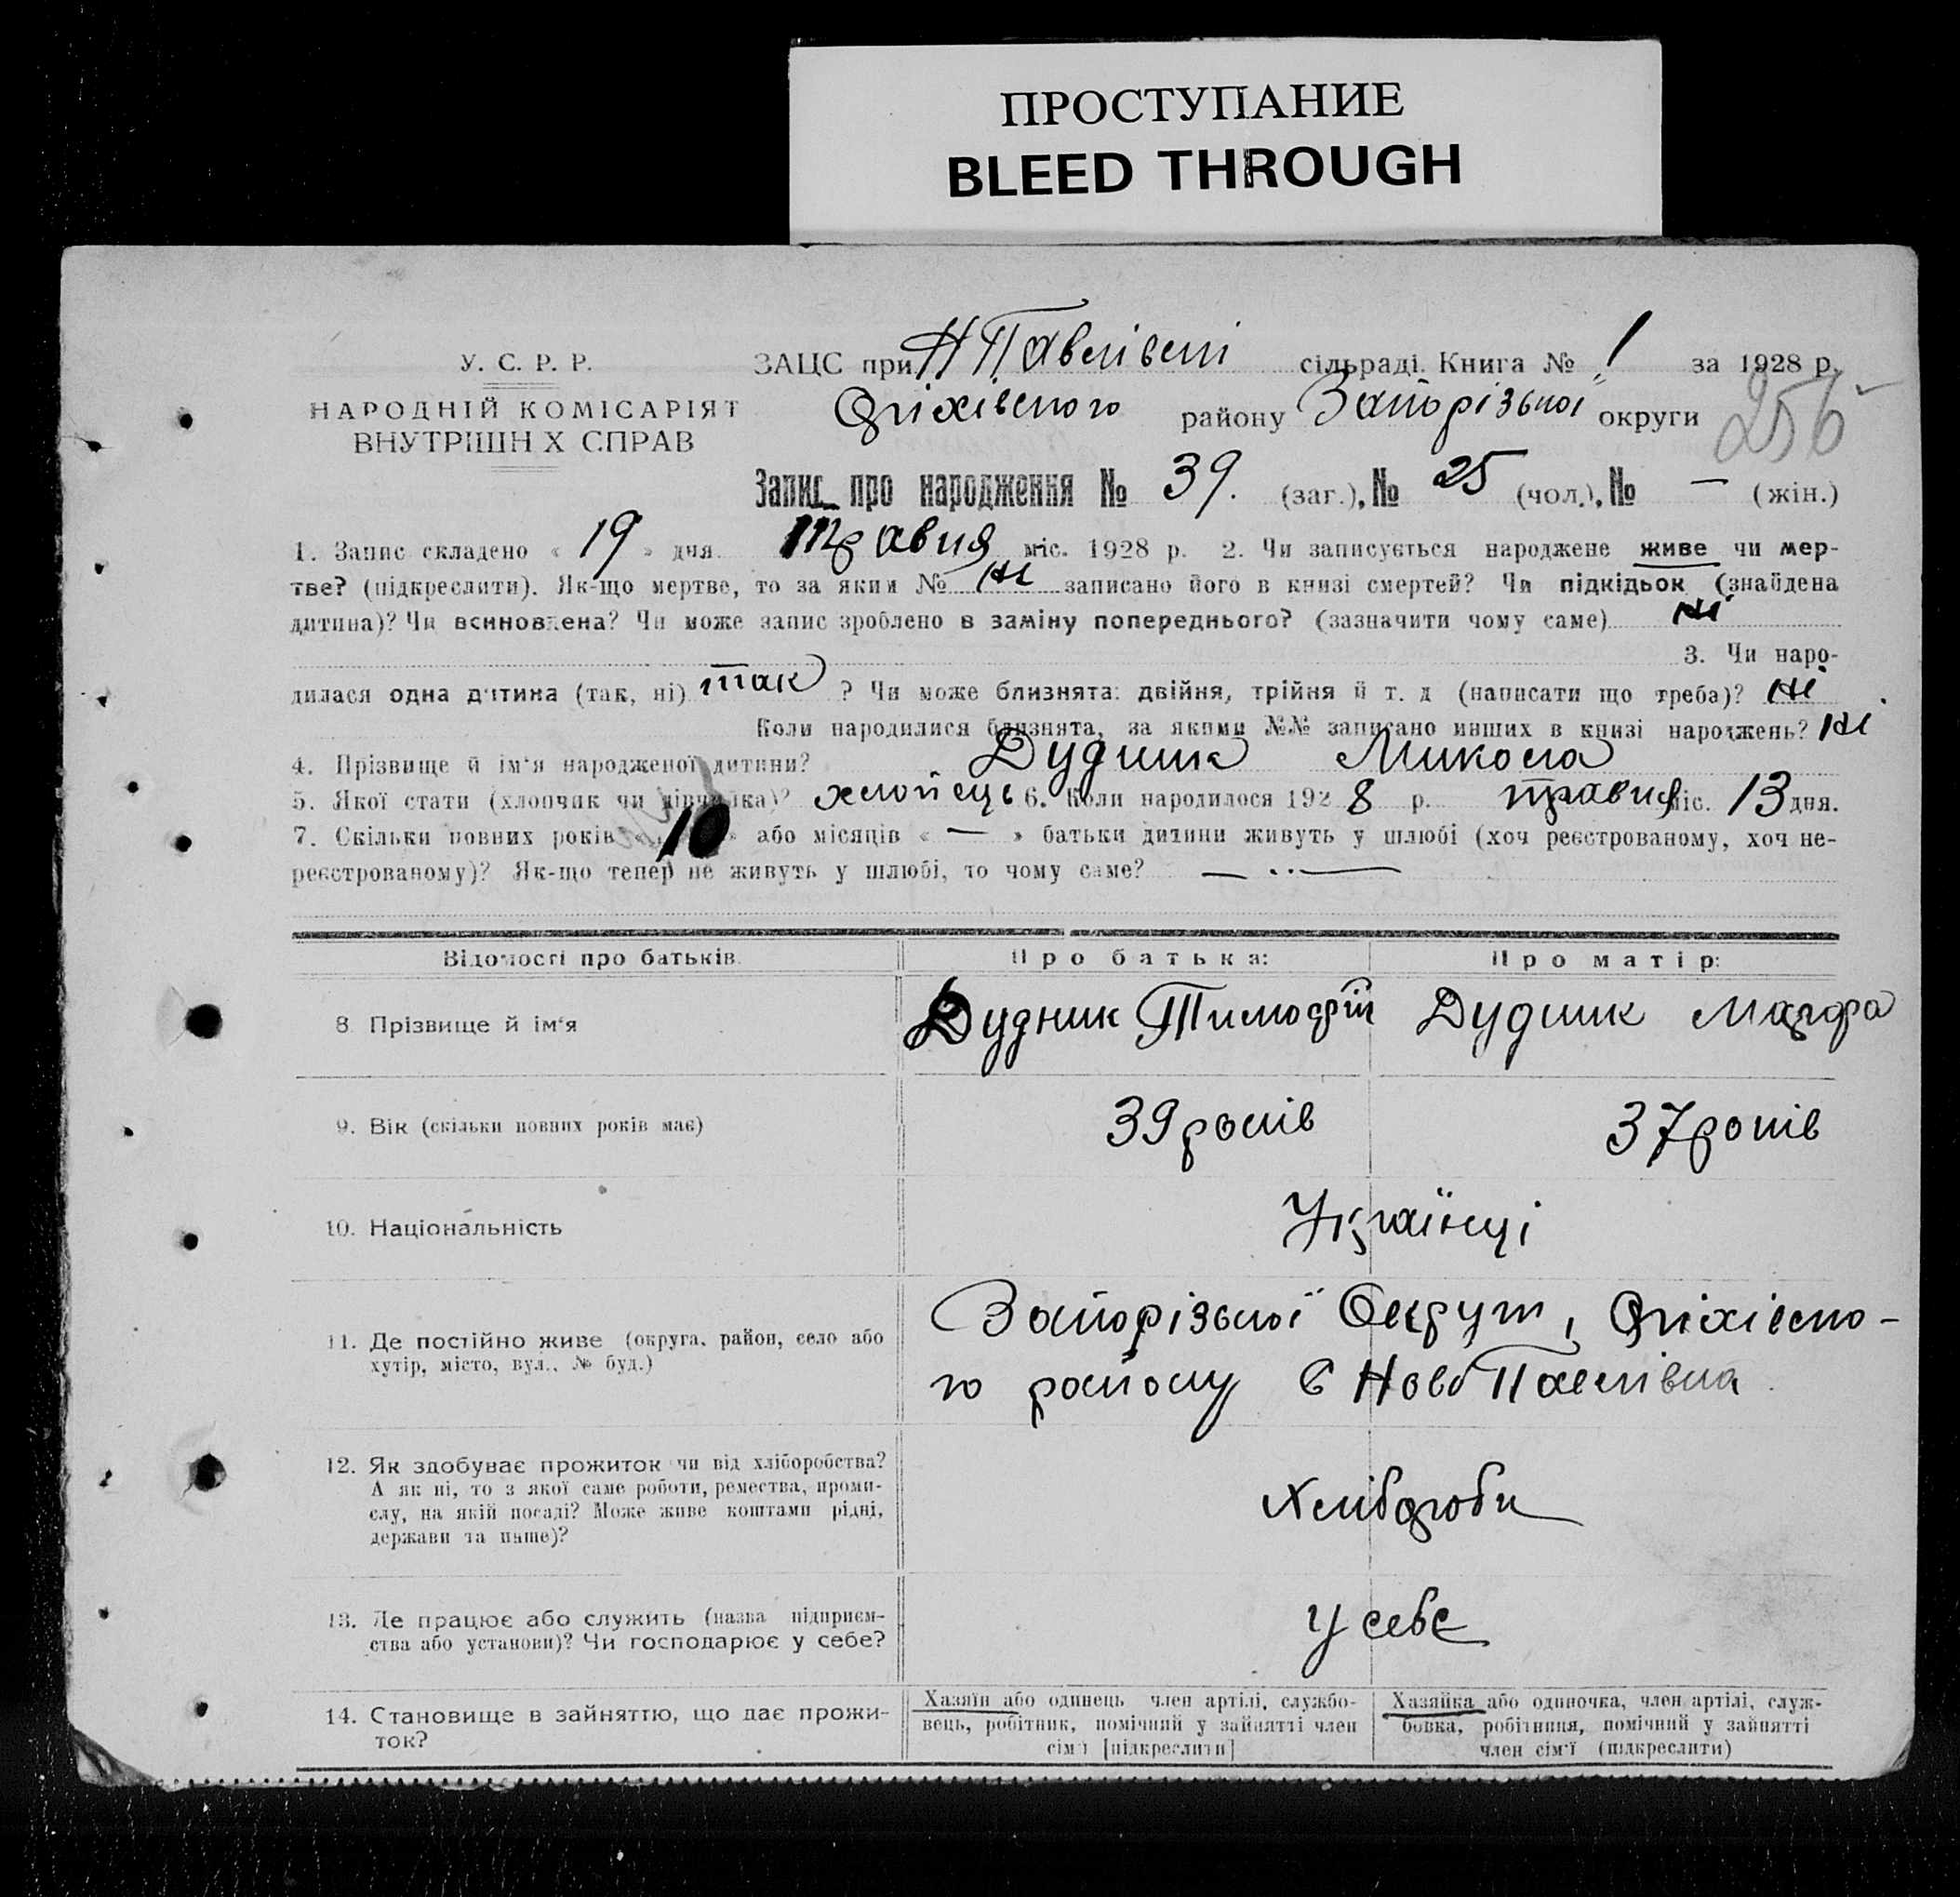 ПРОСТУПАНИЕ
BLEED THROUGH
У. С. Р. Р.
НАРОДНІЙ КОМІСАРІЯТ
ВНУТРІШН Х СПРАВ
ЗАЦС при Н Павлівскі сільраді. Книга № 1 за 1928 р.
Оріхівского району Запорізької округи 256
Запис про народження № 39. (заг.), № 25 (чол.), № — (жін.)
1. Запис складено « 19 » дня Травня міс. 1928 р. 2. Чи записується народжене живе чи мер-
тве? (підкреслити). Як-що мертве, то за яким № ні записано його в книзі смертей? Чи підкідьок (знайдена
дитина)? Чи всиновлена? Чи може запис зроблено в заміну попереднього? (зазначити чому саме) ні
3. Чи наро-
дилася одна дитина (так, ні) так ? Чи може близнята: двійня, трійня й т. д (написати що треба)? ні
Коли народилися близнята, за якими №№ записано инших в книзі народжень? ні
4. Прізвище й ім'я народженої дитини? Дудник Микола
5. Якої стати (хлопчик чи дівчинка)? хлопець 6. Коли народилося 1928 р. травня міс. 13 дня.
7. Скільки повних років « 10 » або місяців « — » батьки дитини живуть у шлюбі (хоч реєстрованому, хоч не-
реєстрованому)? Як-що тепер не живуть у шлюбі, то чому саме? —
Відомості про батьків Про батька: Про матір:
8. Прізвище й ім'я Дудник Тимофій Дудник Марфа
9. Вік (скільки повних років має) 39 років 37 років
10. Національність Українці
11. Де постійно живе (округа, район, село або
хутір, місто, вул., № буд.)
Запорізької Округи, Оріхівско-
го району С Ново Павлівка
12. Як здобуває прожиток чи від хліборобства?
А як ні, то з якої саме роботи, ремества, проми-
слу, на якій посаді? Може живе коштами рідні,
держави та инше)?
Хлібороби
13. Де працює або служить (назва підприєм-
ства або установи)? Чи господарює у себе?
У себе
14. Становище в зайняттю, що дає прожи-
ток?
Хазяїн або одинець член артілі, службо-
вець, робітник, помічний у зайнятті член
сім'ї [підкреслити]
Хазяйка або одиночка, член артілі, служ-
бовка, робітниця, помічний у зайнятті
член сім'ї (підкреслити)